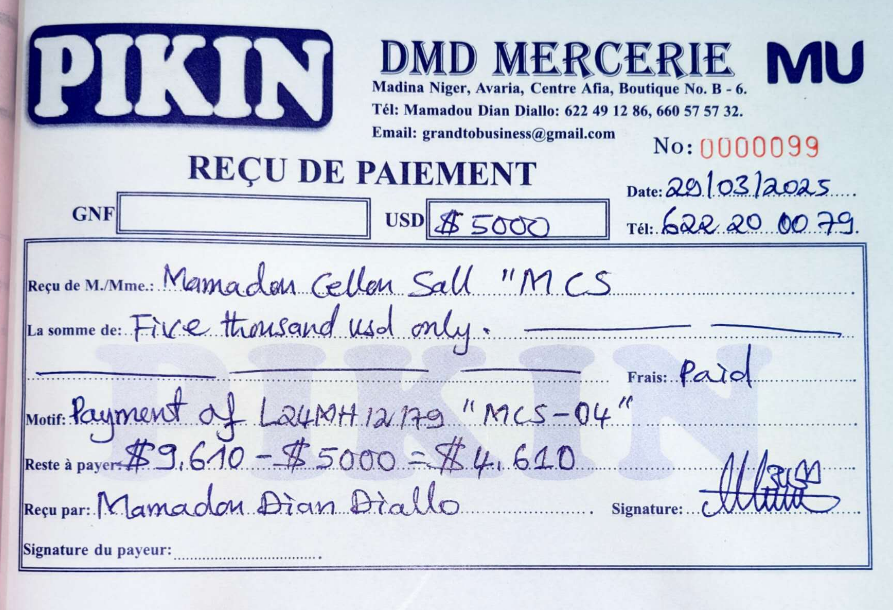 PIKIN
DMD MERCERIE MU
Madina Niger, Avaria, Centre Afia, Boutique No. B - 6.
Tél: Mamadou Dian Diallo: 622 49 12 86, 660 57 57 32.
Email: grandtobusiness@gmail.com
No: 0000099
REÇU DE PAIEMENT
Date: 29/03/2025
GNF USD $ 5000
Tél: 622 20 00 79.
Reçu de M./Mme.: Mamadou Cellou Sall "MCS
La somme de: Five thousand usd only.
Frais: Paid
Motif: Payment of L24MH12179 "MCS-04"
Reste à payer: $9.610 - $5000 = $4.610
Reçu par: Mamadou Dian Diallo Signature:
Signature du payeur:
PIKIN